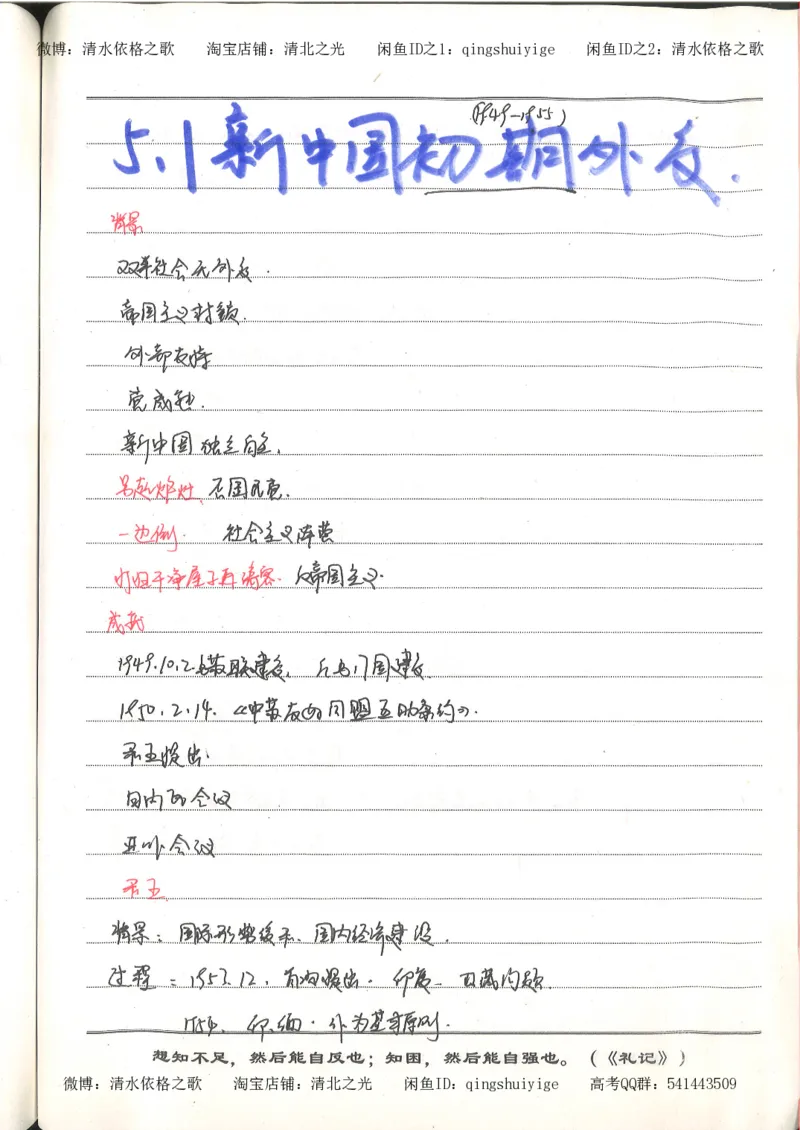 微博：清水依格之歌 淘宝店铺：清北之光 闲鱼ID之1：qingshuiyige 闲鱼ID之2：清水依格之歌
(1949-1955)
5.1 新中国初期外交.
背景
社会 外交.
帝国主义封锁.
外部支持
新中国独立自主.
另起炉灶
一边倒. 社会主义阵营
打扫干净屋子再请客. 反帝国主义.
成就
1949.10.2 与苏联建交, 后与17国建交.
1950.2.14.《中苏友好同盟互助条约》.
和五提出.
日内瓦会议
亚非会议
和五.
背景：国际形势缓和、国内经济建设.
过程：1953.12, 首次提出. 印度- 西藏问题.
1954、印、缅. 作为基本原则.
想知不足，然后能自反也；知困，然后能自强也。（《礼记》）
微博：清水依格之歌 淘宝店铺：清北之光 闲鱼ID：qingshuiyige 高考QQ群：541443509